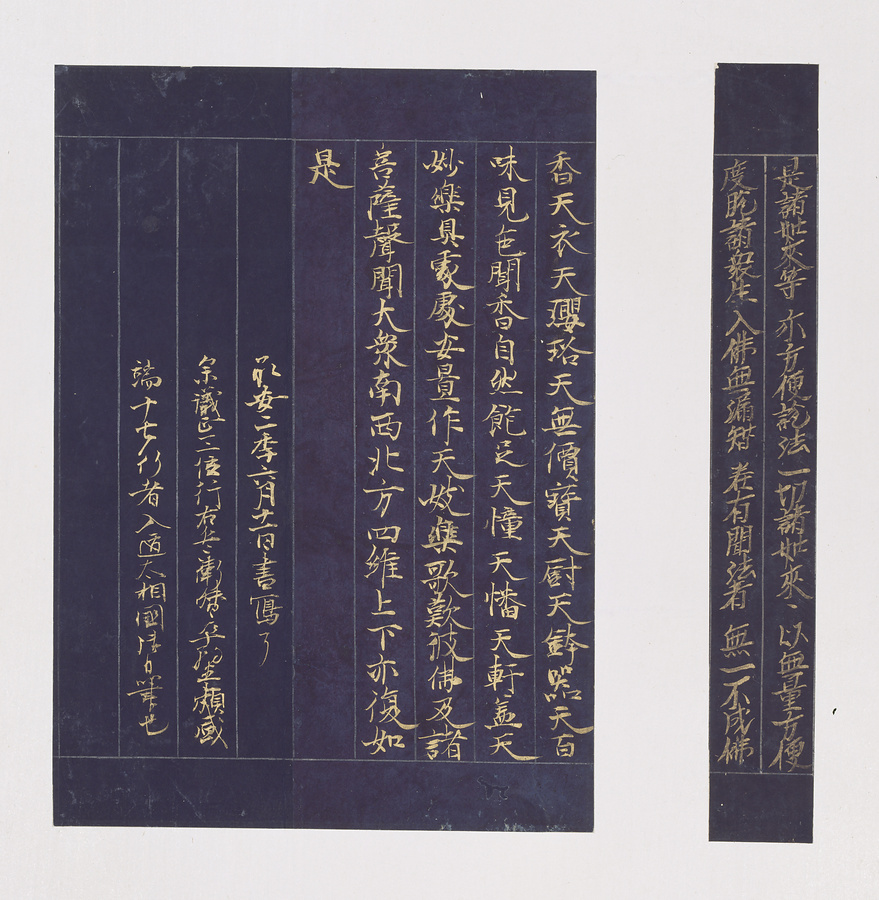 是諸如來等 亦方便說法 一切諸如來 以無量方便
度脫諸衆生 入佛無漏智 若有聞法者 無一不成佛
香天衣天瓔珞天無價寶天厨天鉢器天百
味見色聞香自然飽足天幢天幡天軒盖天
妙樂具處處安置作天妓樂歌歎彼佛及諸
菩薩聲聞大衆南西北方四維上下亦復如
是
承安二季六月日書寫了
參議正三位行右兵衛督平朝臣頼盛
端十七行者入道太相國御自筆也